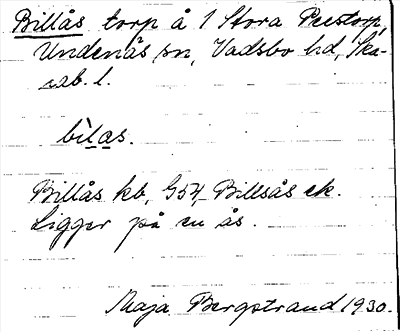 Billås torp å 1 Stora Peestorp,
Undenäs sn, Vadsbo hd, Ska-
rab. l.
bìlas.
Billås kb, G54, Billsås ek.
Ligger på en ås.
Maja Bergstrand 1930.